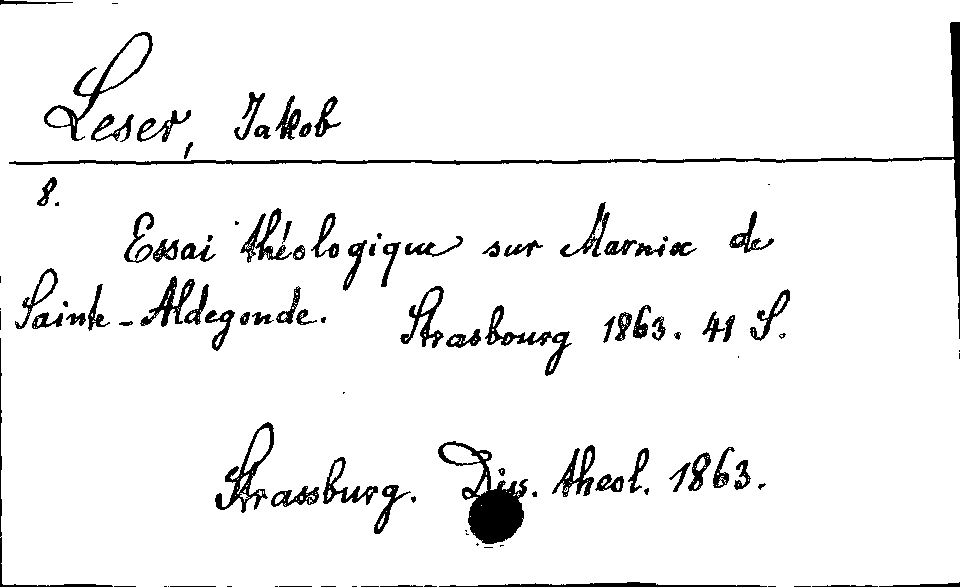 Leser, Jakob
8.
Essai théologique sur Marnix de
Sainte-Aldegonde. Strasbourg 1863. 41 S.
Strassburg. Diss. theol. 1863.